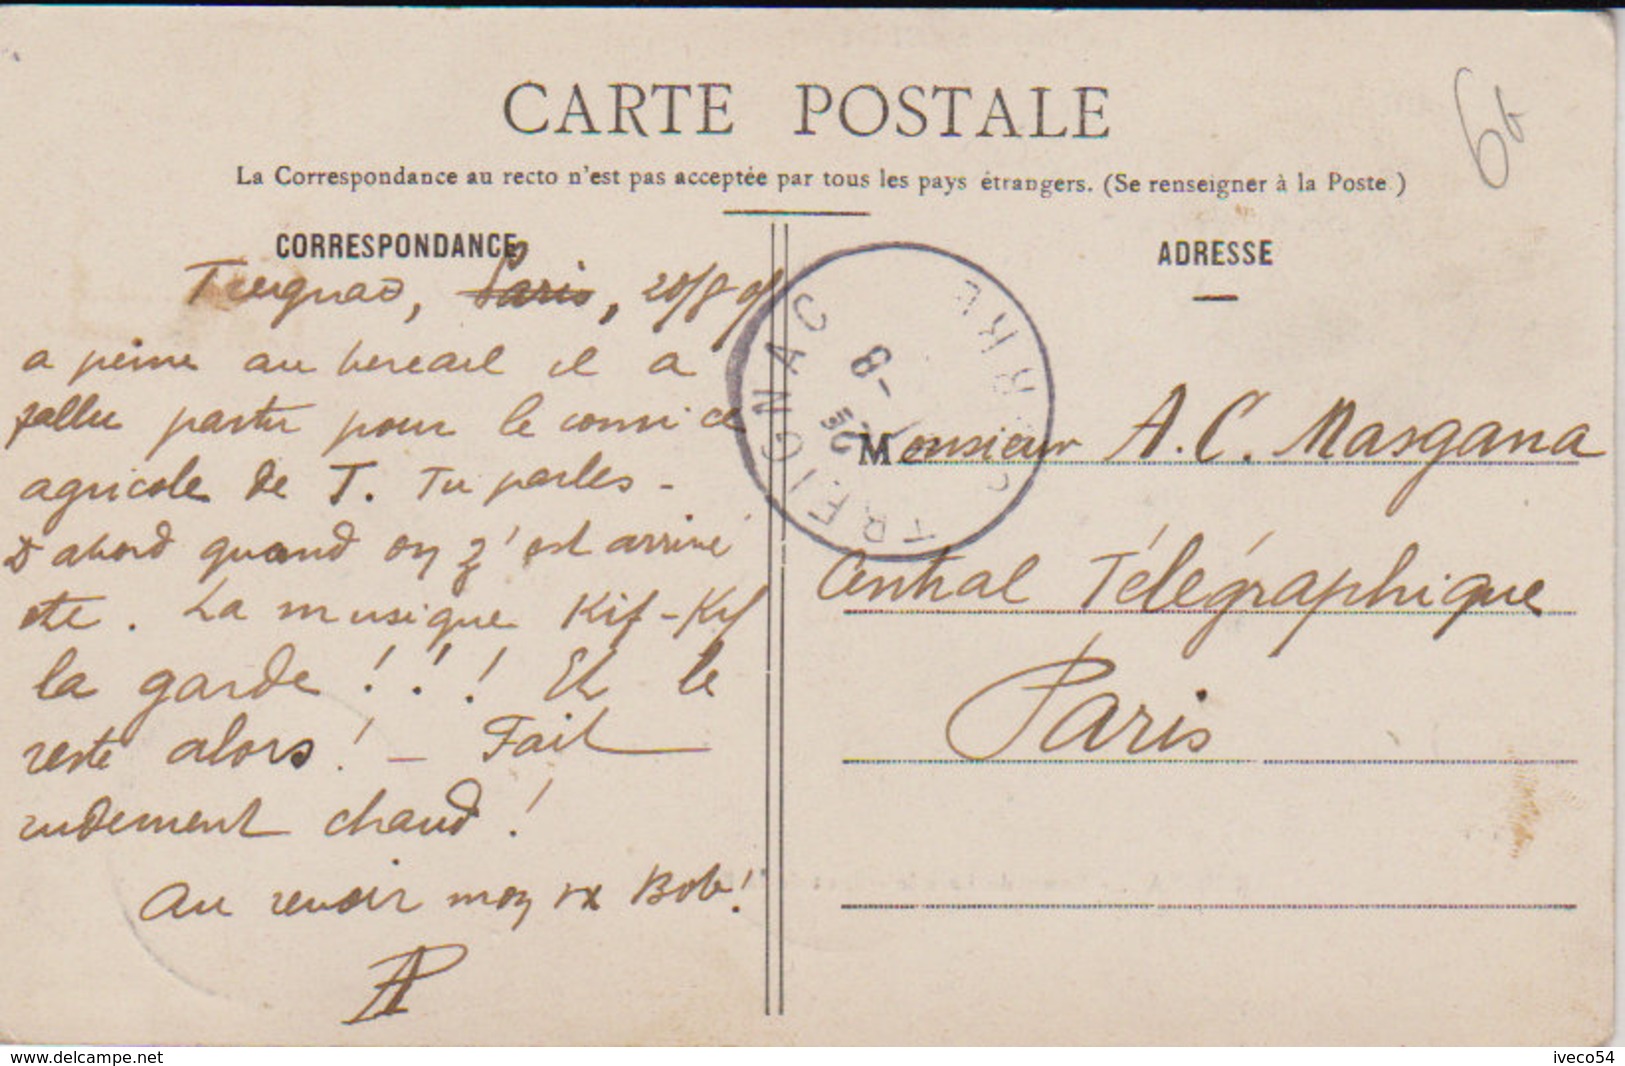 CARTE POSTALE
La Correspondance au recto n'est pas acceptée par tous les pays étrangers. (Se renseigner à la Poste.)
CORRESPONDANCE
Treignac, Paris, 20/8
a peine au bercail il a
fallu partir pour le comice
agricole de T. Tu parles -
D'abord quand on z'est arrivé
etc. La musique Kif-Kif
la garde ! ! ! Et le
reste alors ! - Fait
rudement chaud !
Au revoir mon vx Bob !
AP
ADRESSE
Monsieur A. C. Masgana
Central Télégraphique
Paris
TREIGNAC
CORRÈZE
6
www.delcampe.net
iveco54